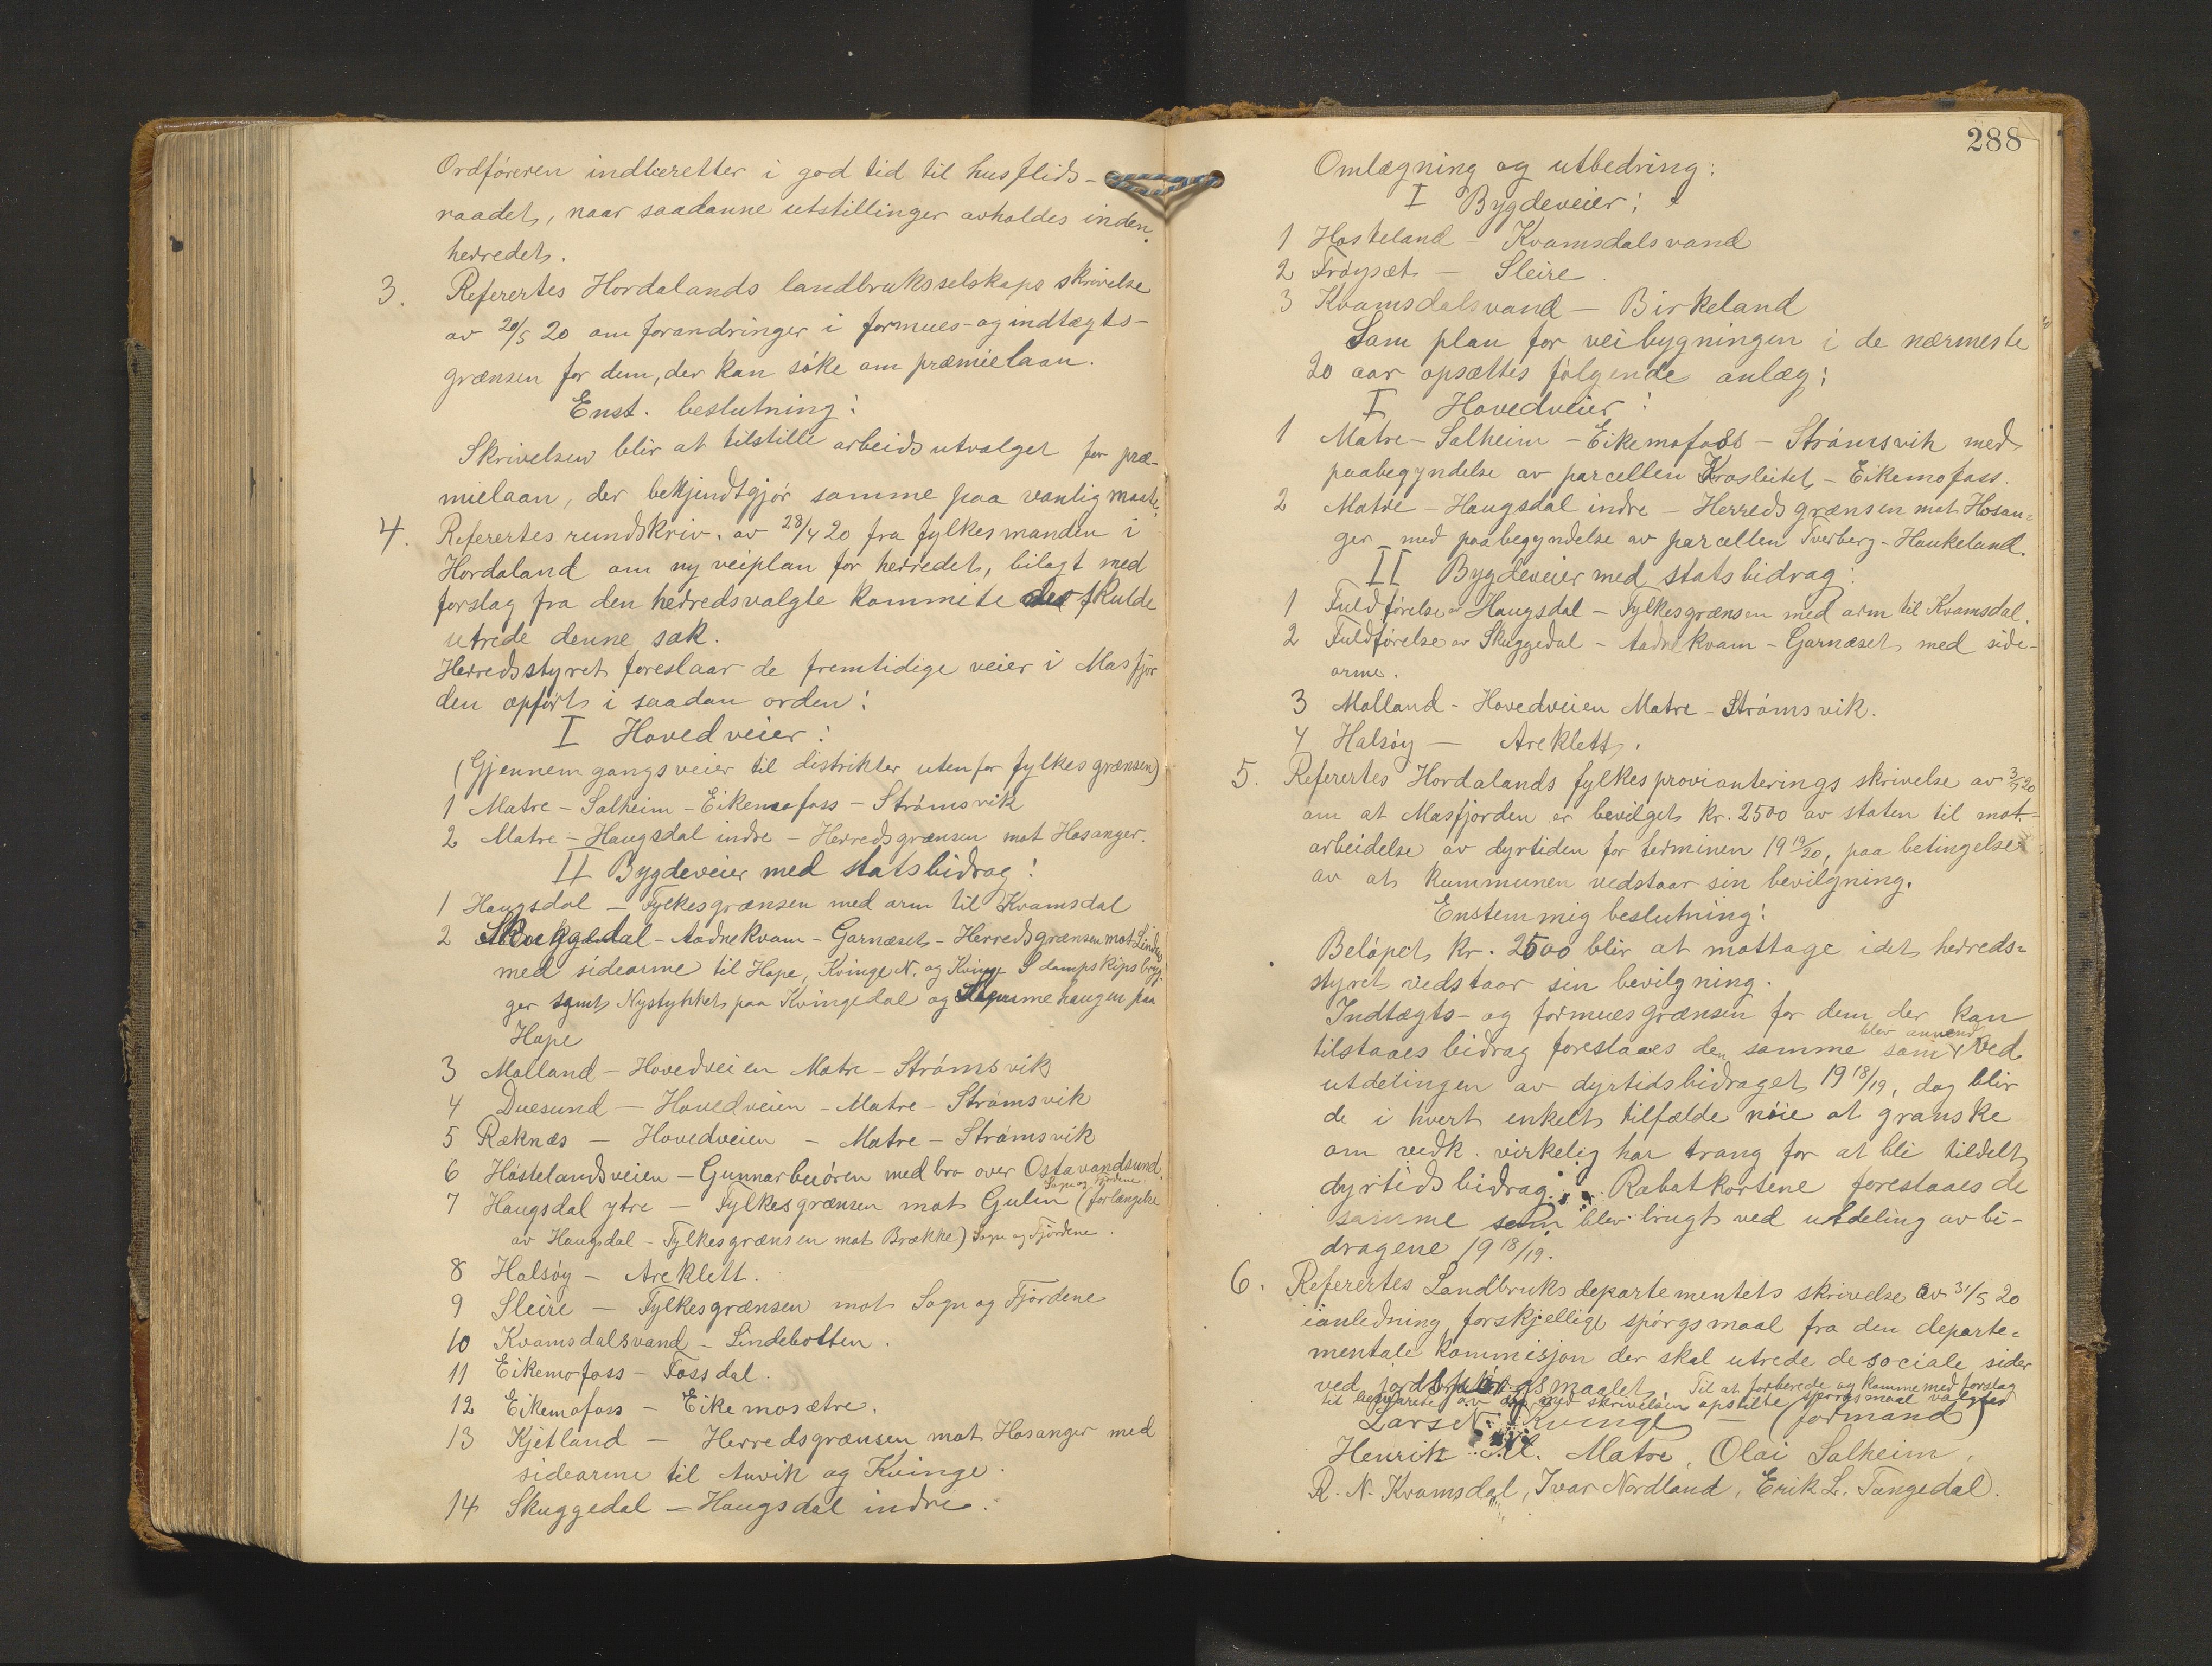 Ordføreren indberetter i god tid til husflids-
raadet, naar saadanne utstillinger avholdes inden
herredet.
3. Refereretes Hordalands landbruksselskaps skrivelse
av 20/5 20 om forandringer i formues- og indtægts-
grænsen for dem, der kan søke om præmielaan.
Enst. beslutning:
Skrivelsen blir at tilstille arbeidsutvalget for præ-
mielaan, der bekjendtgjør samme paa vanlig maate.
4. Refererts rundskriv. av 28/4 20 fra fylkesmanden i
Hordaland om ny veiplan for herredet, bilagt med
forslag fra den herredsvalgte kommite der skulde
utrede denne sak.
Herredsstyret foreslaar de fremtidige veier i Masfjor
den opført i saadan orden:
I Hovedveier:
(Gjennemgangsveier til distrikter utenfor fylkesgrænsen)
1 Matre - Solheim - Eikemofoss - Strømsvik
2 Matre - Haugsdal indre - Herredsgrænsen mot Hosanger.
II Bygdeveier med statsbidrag:
1 Haugsdal - Fylkesgrænsen med arm til Kvamsdal
2 Skuggedal - Aadnekvam - Garnæset - Herredsgrænsen mot Lindaas
med sidearme til Hope, Kvinge N. og Kvinge S dampskipsbryg
ger samt Nystykket paa Kvingedal og haugen paa
Hope
3 Molland - Hovedveien Matre - Strømsvik
4 Duesund - Hovedveien - Matre - Strømsvik
5 Ræknes - Hovedveien - Matre - Strømsvik
6 Høstelandsveien - Gunnarbuøren med bro over Ostavandsund.
7 Haugsdal ytre - Fylkesgrænsen mot Gulen Sogn og Fjordene. (forlængelse
av Haugsdal - Fylkesgrænsen mot Brække) Sogn og Fjordene.
8 Halsøy - Areklett.
9 Sleire - Fylkesgrænsen mot Sogn og Fjordene
10 Kvamsdalsvand - Lindebotten.
11 Eikemofoss - Fossdal.
12 Eikemofoss - Eikemosætre.
13 Kjetland - Herredsgrænsen mot Hosanger med
sidearme til Anvik og Kvinge.
14 Skuggedal - Haugsdal indre.
288
Omlægning og utbedring:
I Bygdeveier:
1 Hosteland - Kvamsdalsvand
2 Frøyset - Sleire.
3 Kvamsdalsvand - Birkeland
Som plan for veibygningen i de nærmeste
20 aar opsættes følgende anlæg:
I Hovedveier:
1 Matre - Solheim - Eikemofoss - Strømsvik med
paabegyndelse av parcellen Krosleitet - Eikemofoss.
2 Matre - Haugsdal indre - Herredsgrænsen mot Hosan=
ger - med paabegyndelse av parcellen Tverberg - Haukeland.
II Bygdeveier med statsbidrag:
1 Fuldførelse av Haugsdal - Fylkesgrænsen med arm til Kvamsdal.
2 Fuldførelse av Skuggedal - Aadnekvam - Garnæset med side-
arme.
3 Molland - Hovedveien Matre - Strømsvik.
4 Halsøy - Areklett.
5. Refererets Hordalands fylkesprovianterings skrivelse av 20
om at Masfjorden er bevilget kr. 2500 av staten til mot-
arbeidelse av dyrtiden for terminen 19 19/20, paa betingelse
av at kommunen vedstaar sin bevilgning.
Enstemmig beslutning:
Beløpet kr. 2500 blir at mottage idet herreds=
styret vedstaar sin bevilgning.
Indtægts- og formuesgrænsen for dem der kan
tilstaaes bidrag foreslaaes den samme som blev anvend ved
utdelingen av dyrtidsbidraget 19 18/19, dog blir
de i hvert enkelt tilfælde nøie at granske
om vedk. virkelig har trang for at bli tildelt
dyrtidsbidrag. Rabatkortene foreslaaes de
samme som blev brugt ved utdeling av bi-
dragene 19 18/19.
6. Refererets Landbruksdepartementets skrivelse av 31/5 20
ianledning forskjellige spørgsmaal fra den departe=
mentale kommisjon der skal utrede de sociale sider
ved jordspørgsmaalet. Til at forberede og komme med forslag
til besvarelse av de med skrivelsen opstilte spørgsmaal valgtes
Lars N. Kvinge - (formand)
Henrik Matre, Olai Solheim,
R. N. Kvamsdal, Ivar Nordland, Erik L. Tangedal.